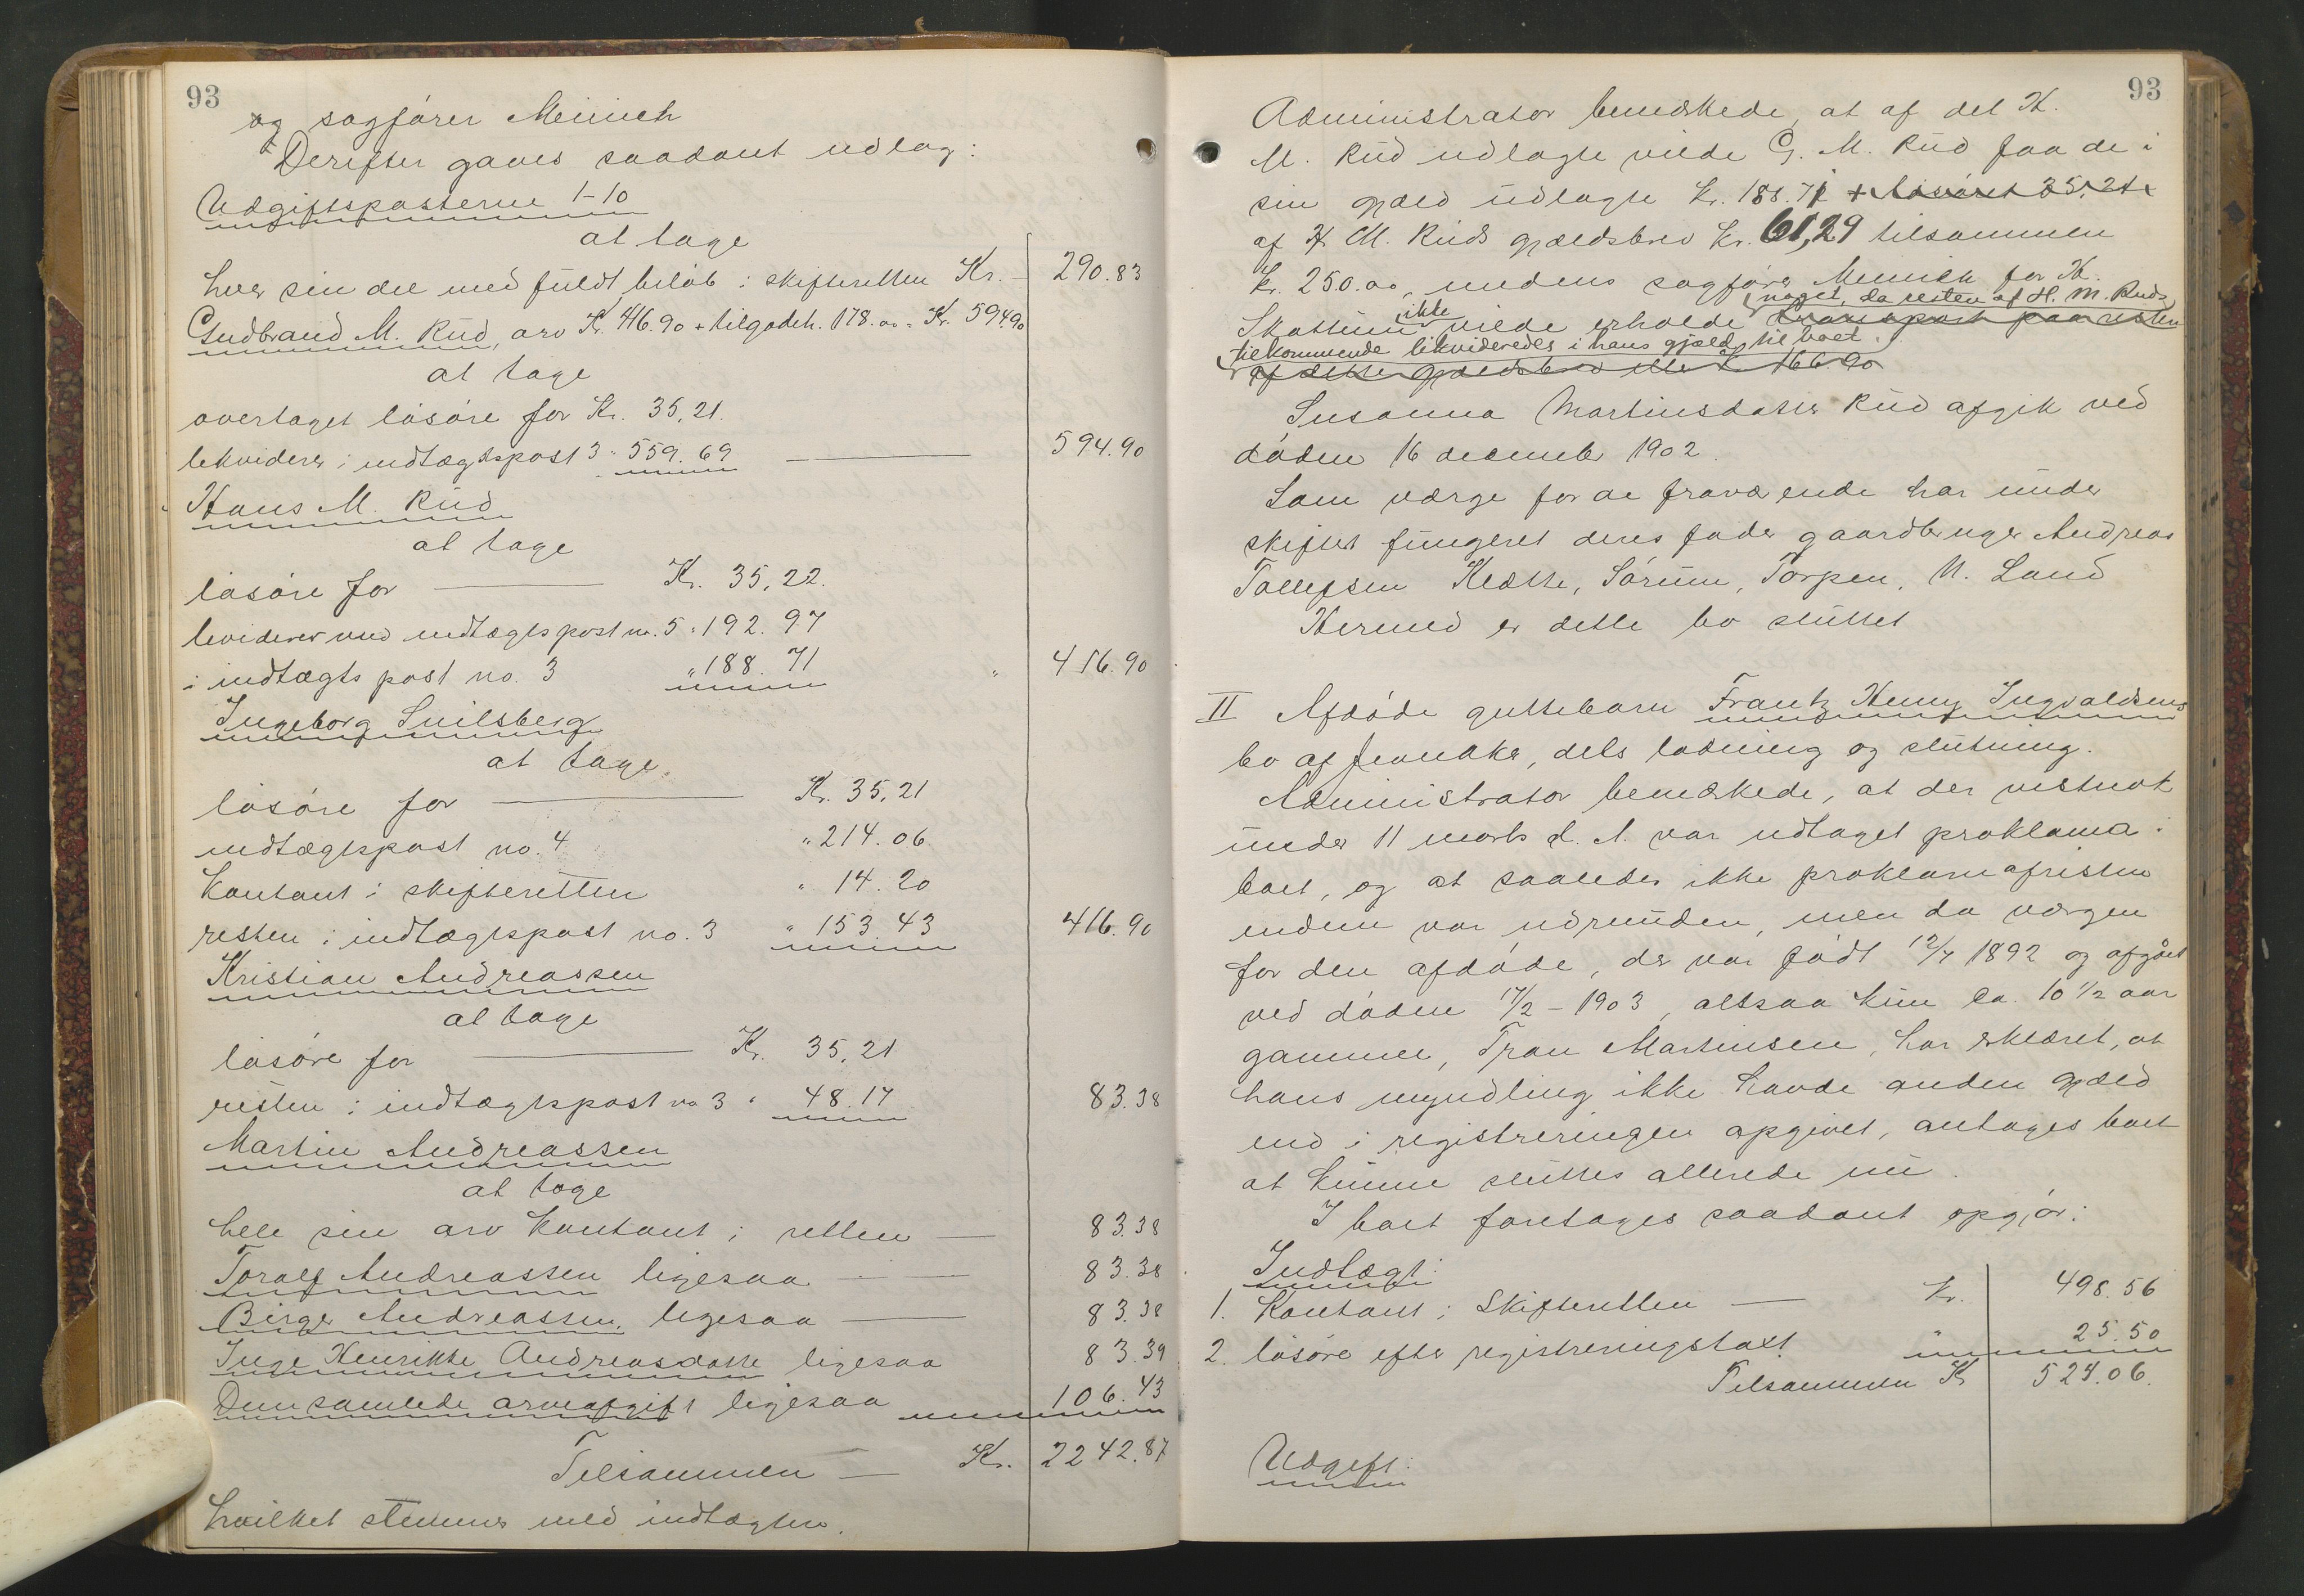 93
og sagfører Meinich
Derefter gaves saadant udlæg:
Udgiftsposterne 1-10
at tage
hver sin del med fuldt beløb i skifteretten Kr. - 290.83
Gudbrand M. Rud, arv Kr. 416.90 + tilgodeh. 178.00 = Kr. 594.90
at tage
overtaget løsøre for Kr. 35,21.
likviderer i indtægtspost 3 " 559.69 — 594.90
Hans M. Rud
at tage
løsøre for — Kr. 35,22.
likviderer ved indtægtspost no. 5 " 192.97
i indtægts post no. 3 " 188.71 " 416.90
Ingeborg Snilsberg
at tage
løsøre for — Kr. 35,21
indtægtspost no. 4 " 214.06
Kontant i skifteretten " 14.20
resten i indtægtspost no. 3 " 153.43 416.90
Kristian Andreassen
at tage
løsøre for — Kr. 35,21
resten i indtægtspost no 3 " 48.17 83.38
Martin Andreassen
at tage
hele sin arv kontant i retten — 83.38
Toralf Andreassen ligesaa — 83.38
Birger Andreassen, ligesaa — 83.38
Inge Henrikke Andreasdatter ligesaa 83.39
Den samlede arveafgift ligesaa 106.43
Tilsammen — Kr. 2242.87
hvilket stemmer med indtægten.
93
Administrator bemærkede, at af det H.
M. Rud udlagte vilde G. M. Rud faa de i
sin gjæld udlagte kr. 188.71 + løsøret 35,21
af H. M. Ruds gjældsbrev kr. 61,29 tilsammen
kr. 250.00, medens sagfører Meinich for H.
noget, da resten af H. M. Ruds
Skattum ikke vilde erholde transport paa resten
tilkommende likvideredes i hans gjæld til boet.
af dette gjældsbrev eller kr 166.90
Susanna Martinsdatter Rud afgik ved
døden 16 december 1902.
Som værge for de fraværende har under
skiftet fungeret deres fader gaardbruger Andreas
Tollefsen Klætte, Sørum, Torpen, N. Land
Hermed er dette bo sluttet
II Afdøde guttebarn Frantz Henny Ingvaldsens
bo af Jevnaker, dels lodning og slutning.
Administrator bemærkede, at der vistnok
under 11 marts d. A. var udtaget proklama i
boet, og at saaledes ikke proklamafristen
endnu var udrunden, men da værgen
for den afdøde, der var født 12/7 1892 og afgået
ved døden 17/2 - 1903, altsaa kun ca. 10 1/2 aar
gammel, Tran Martinsen, har erklæret, at
hans myndling ikke havde anden gjæld
end i registreringen opgivet, antages boet
at kunne sluttes allerede nu.
I boet foretages saadant opgjør:
Indtægt:
1. Kontant i Skifteretten — kr. 498.56
2. løsøre efter registreringstaxt " 25.50
Tilsammen Kr 524.06.
Udgift: